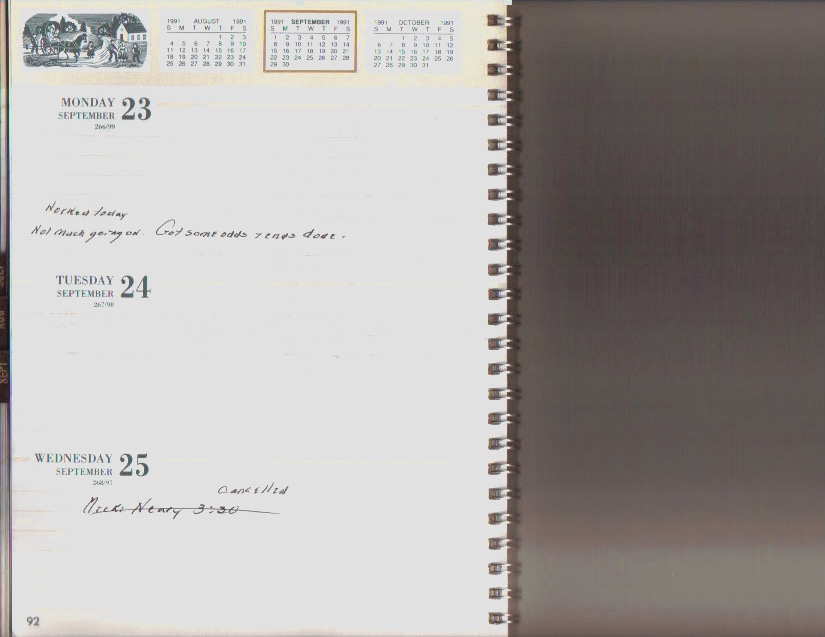 1991 AUGUST 1991
S M T W T F S
1 2 3
4 5 6 7 8 9 10
11 12 13 14 15 16 17
18 19 20 21 22 23 24
25 26 27 28 29 30 31
1991 SEPTEMBER 1991
S M T W T F S
1 2 3 4 5 6 7
8 9 10 11 12 13 14
15 16 17 18 19 20 21
22 23 24 25 26 27 28
29 30
1991 OCTOBER 1991
S M T W T F S
1 2 3 4 5
6 7 8 9 10 11 12
13 14 15 16 17 18 19
20 21 22 23 24 25 26
27 28 29 30 31
MONDAY 23
SEPTEMBER
266/99
Worked today
Not much going on. Got some odds & ends done.
TUESDAY 24
SEPTEMBER
267/98
WEDNESDAY 25
SEPTEMBER
268/97
Cancelled
Nicki 3:30
92
SEPT